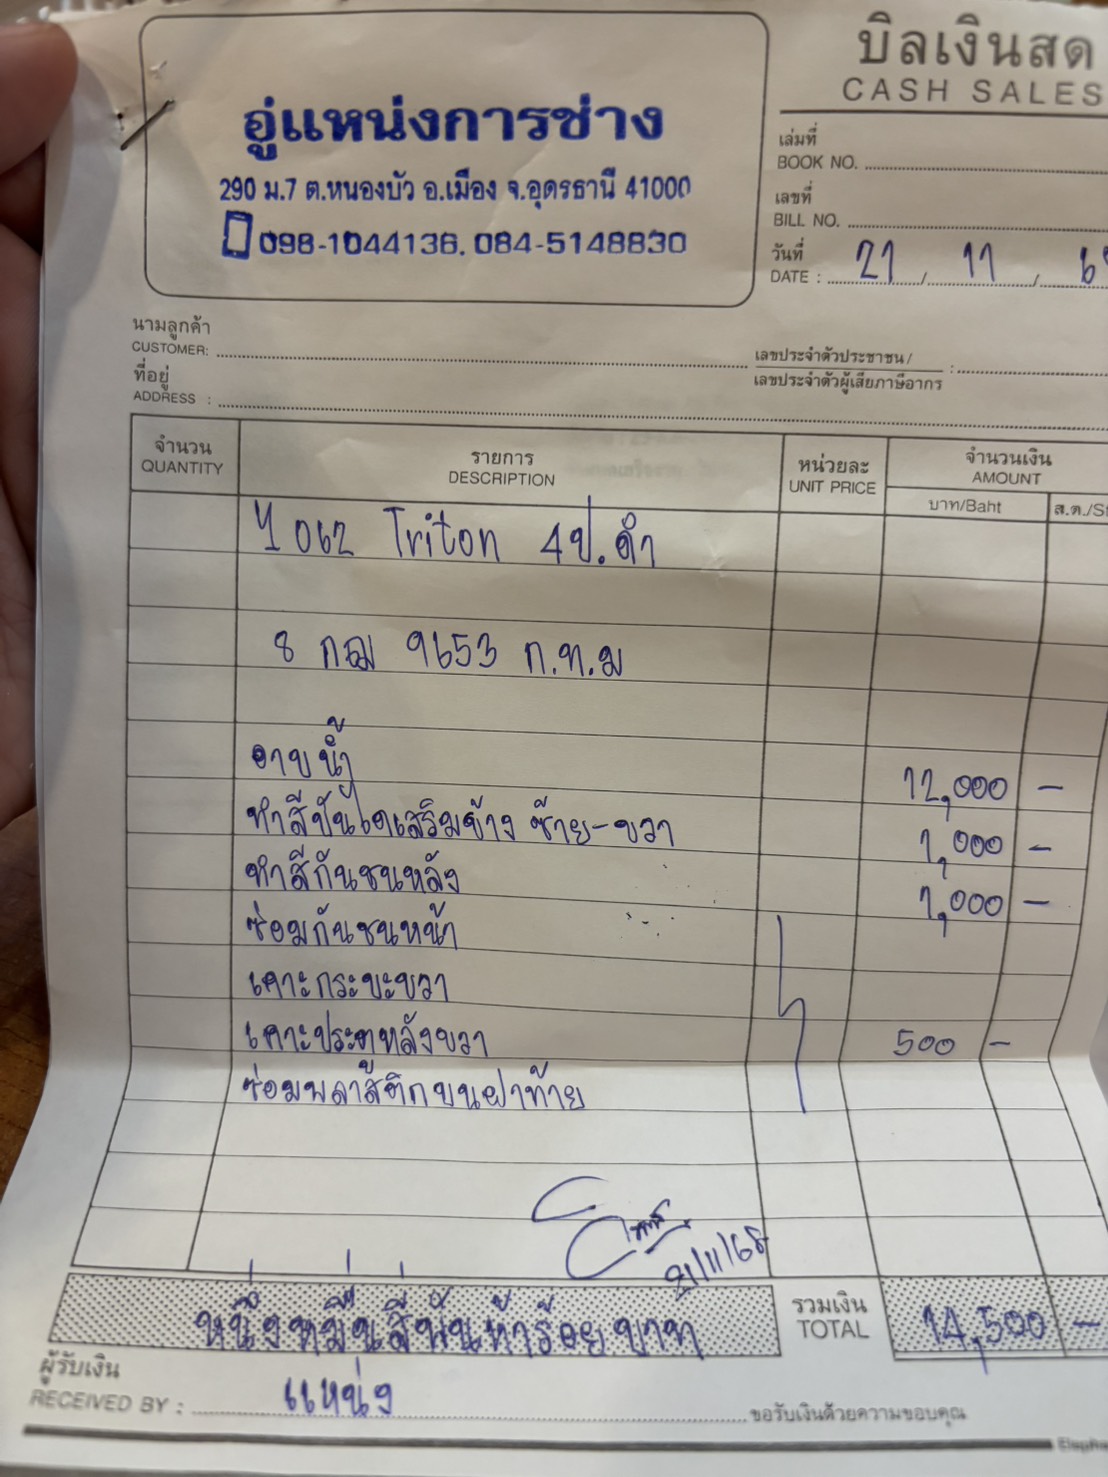 บิลเงินสด
CASH SALES
อู่แหน่งการช่าง
290 ม.7 ต.หนองบัว อ.เมือง จ.อุดรธานี 41000
098-1044136, 084-5148830
เล่มที่
BOOK NO.
เลขที่
BILL NO.
วันที่
DATE : 21 / 11 /
นามลูกค้า
CUSTOMER:
เลขประจำตัวประชาชน/
เลขประจำตัวผู้เสียภาษีอากร :
ที่อยู่
ADDRESS :
จำนวน รายการ หน่วยละ จำนวนเงิน
QUANTITY DESCRIPTION UNIT PRICE AMOUNT
บาท/Baht ส.ต./
062 Triton 4ป.ดำ
8 กฌ 9653 ก.ท.ม
อาบน้ำ 12,000 -
ทำสีบันไดเสริมข้าง ซ้าย-ขวา 1,000 -
ทำสีกันชนหลัง 1,000 -
ซ่อมกันชนหน้า
เคาะกระบะขวา
เคาะประตูหลังขวา 500 -
ซ่อมพลาสติกบนฝาท้าย
21/11/68
หนึ่งหมื่นสี่พันห้าร้อยบาท
รวมเงิน
TOTAL 14,500 -
ผู้รับเงิน
RECEIVED BY : แหน่ง ขอรับเงินด้วยความขอบคุณ